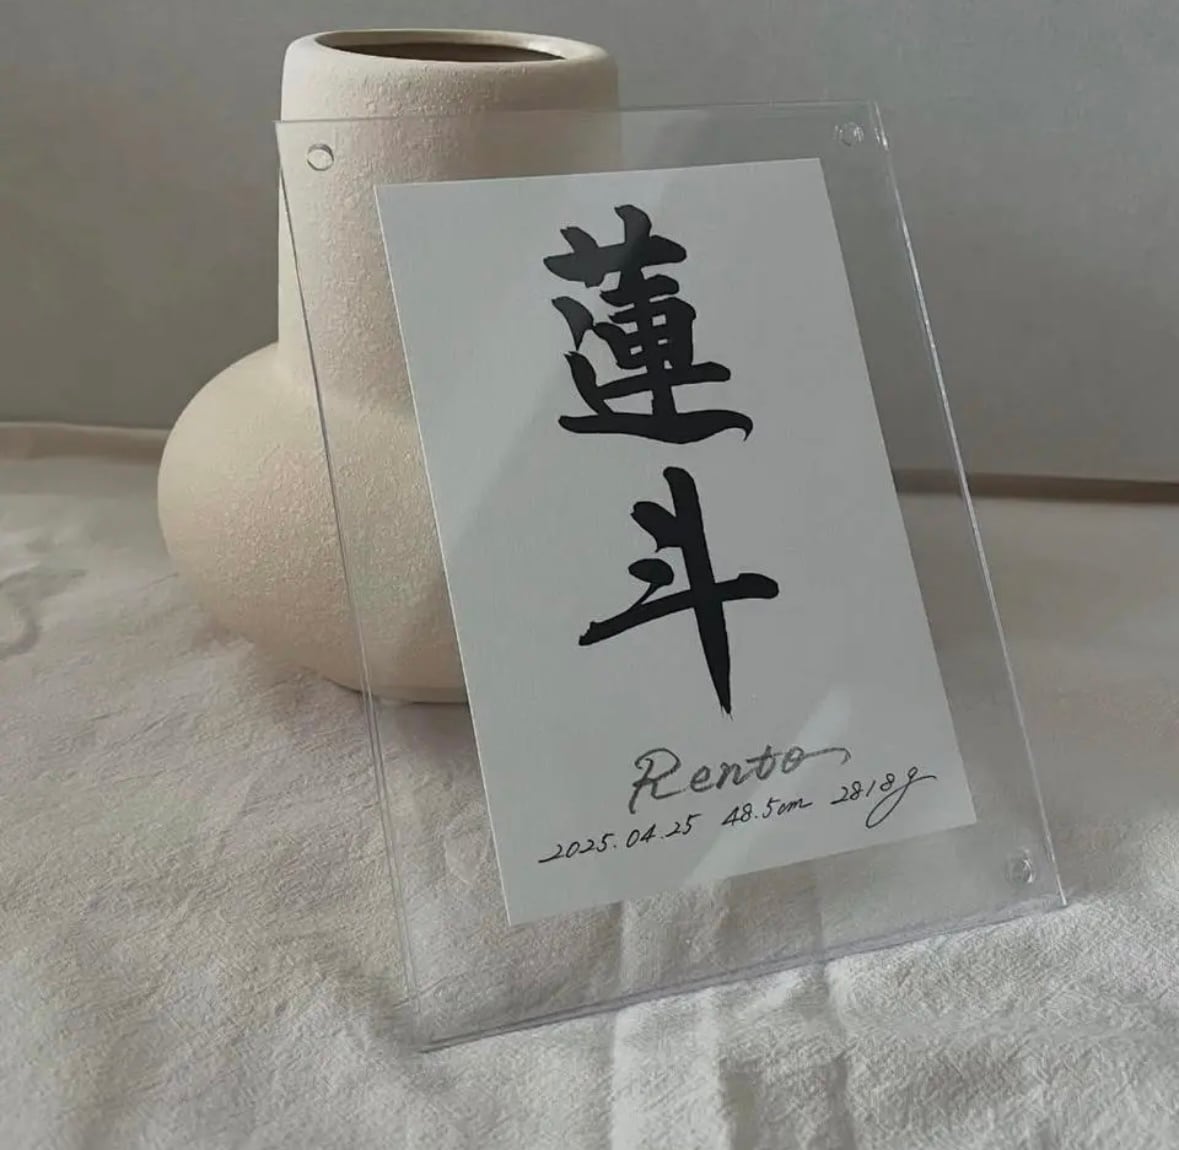 蓮斗
Rento
2025.04.25 48.5cm 2818g